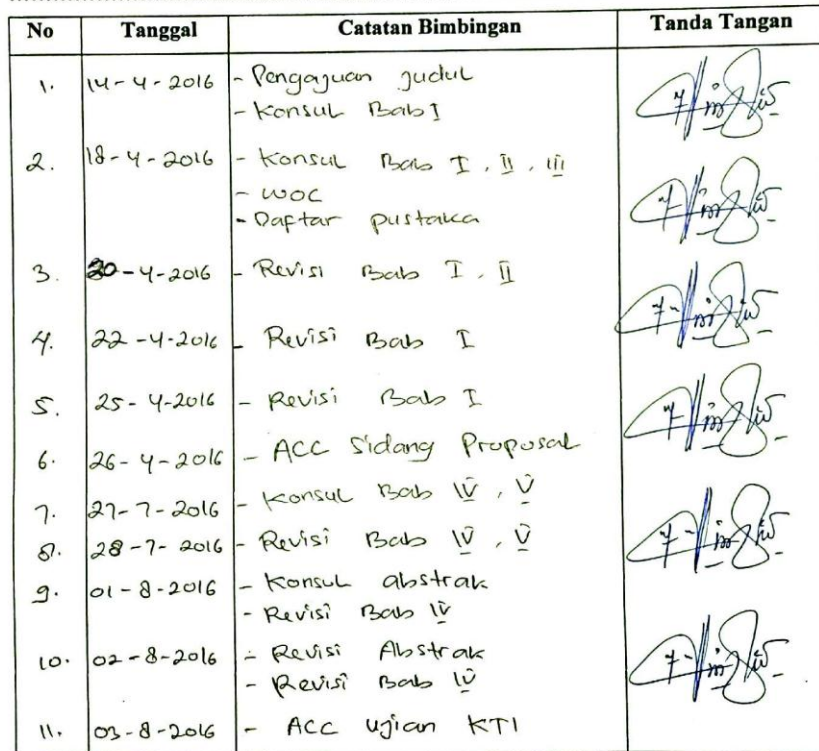 No Tanggal Catatan Bimbingan Tanda Tangan
1. 14-4-2016 - Pengajuan judul
- Konsul Bab I
2. 18-4-2016 - Konsul Bab I, II, III
- WOC
- Daftar pustaka
3. 20-4-2016 - Revisi Bab I, II
4. 22-4-2016 - Revisi Bab I
5. 25-4-2016 - Revisi Bab I
6. 26-4-2016 - ACC Sidang Proposal
7. 27-7-2016 - Konsul Bab IV, V
8. 28-7-2016 - Revisi Bab IV, V
9. 01-8-2016 - Konsul abstrak
- Revisi Bab IV
10. 02-8-2016 - Revisi Abstrak
- Revisi Bab IV
11. 03-8-2016 - ACC ujian KTI